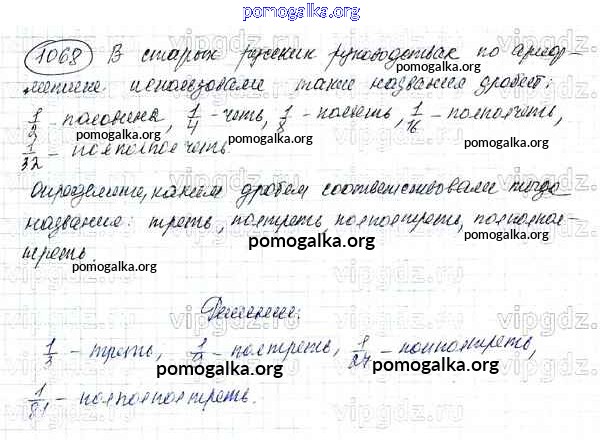 pomogalka.org
1068 В старых русских руководствах по ариф-
pomogalka.org
метике использовали такие названия дробей:
1/2 - половина, 1/4 - четь, 1/8 - полчеть, 1/16 - полполчеть,
pomogalka.org pomogalka.org
1/32 - полполполчеть.
pomogalka.org
Определите, каким дробям соответствовали тогда
pomogalka.org
названия: треть, полтреть, полполтреть, полполпол-
pomogalka.org pomogalka.org
треть.
pomogalka.org
vipgdz.ru
Решение:
1/3 - треть, 1/9 - полтреть, 1/27 - полполтреть,
pomogalka.org pomogalka.org
1/81 - полполполтреть.